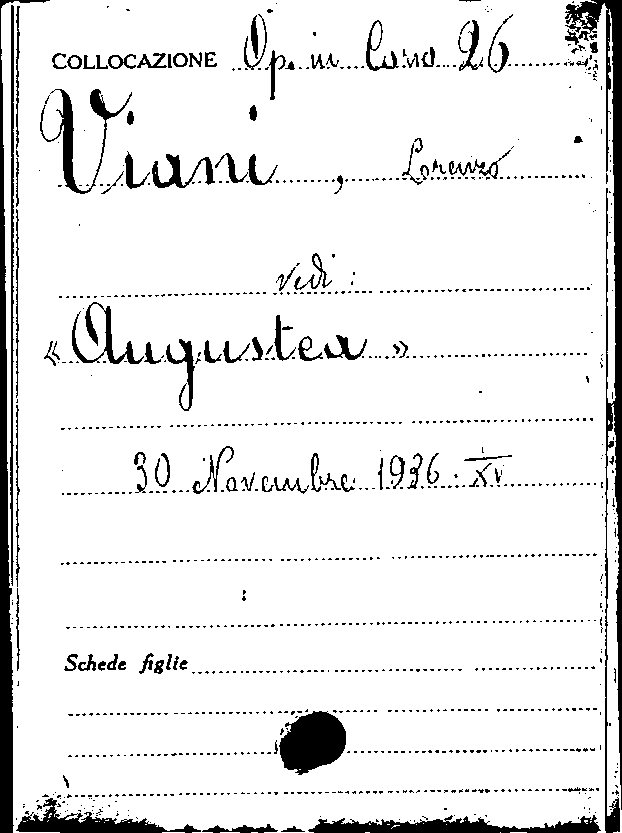 COLLOCAZIONE Op. in Corso 26
Viani, Lorenzo
vedi:
«Augustea»
30 Novembre 1936. XV
Schede figlie